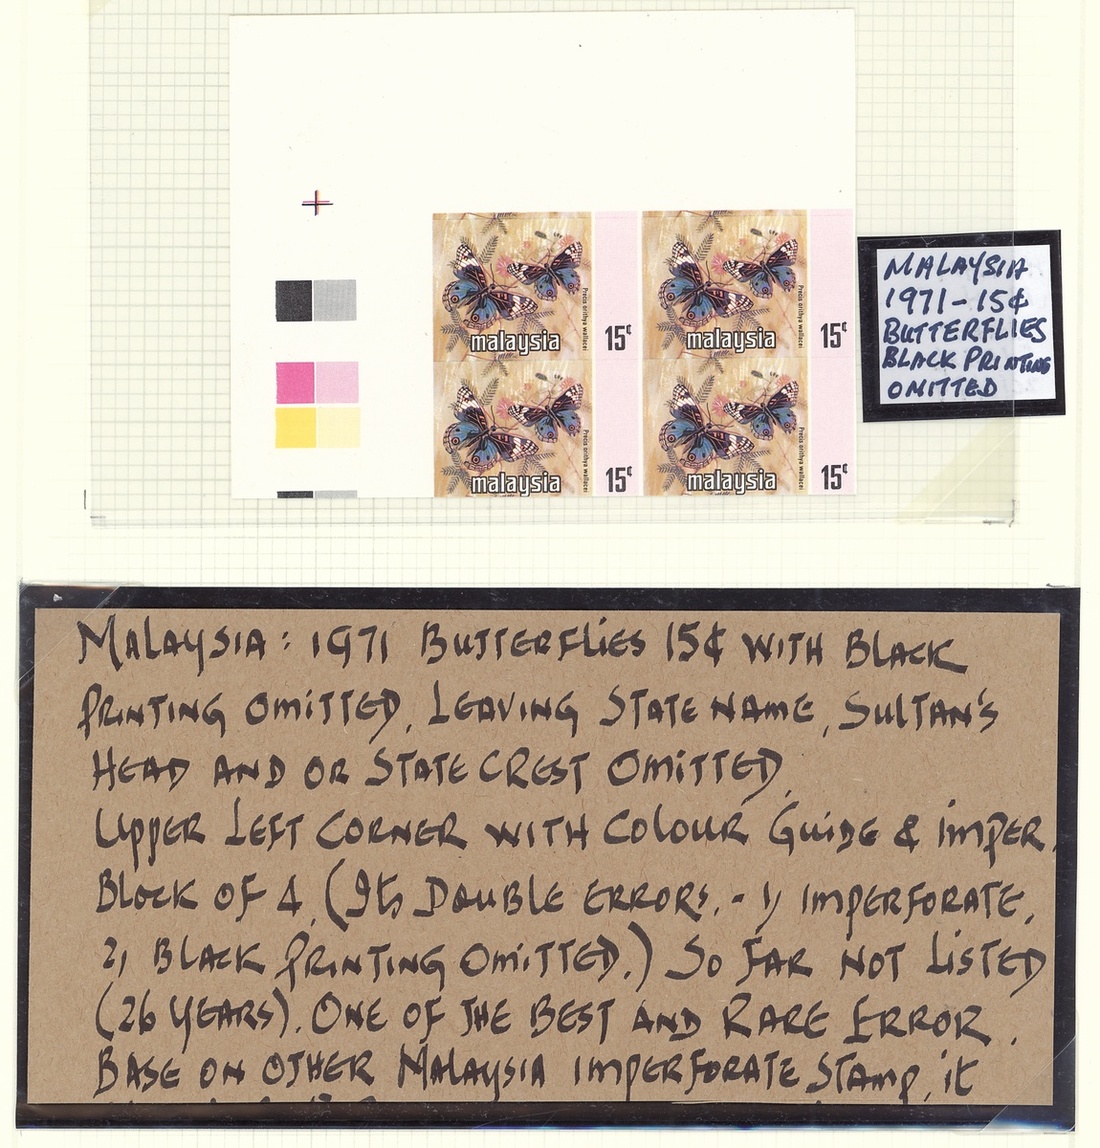 Precis orithya wallacei
malaysia 15¢
Precis orithya wallacei
malaysia 15¢
Precis orithya wallacei
malaysia 15¢
Precis orithya wallacei
malaysia 15¢
MALAYSIA
1971-15¢
BUTTERFLIES
BLACK PRINTING
OMITTED
MALAYSIA: 1971 BUTTERFLIES 15¢ WITH BLACK
PRINTING OMITTED, LEAVING STATE NAME, SULTAN'S
HEAD AND OR STATE CREST OMITTED.
UPPER LEFT CORNER WITH COLOUR GUIDE & IMPER.
BLOCK OF 4. (ITS DOUBLE ERRORS. - 1, IMPERFORATE,
2, BLACK PRINTING OMITTED.) SO FAR NOT LISTED
(26 YEARS). ONE OF THE BEST AND RARE ERROR.
BASE ON OTHER MALAYSIA IMPERFORATE STAMP, it